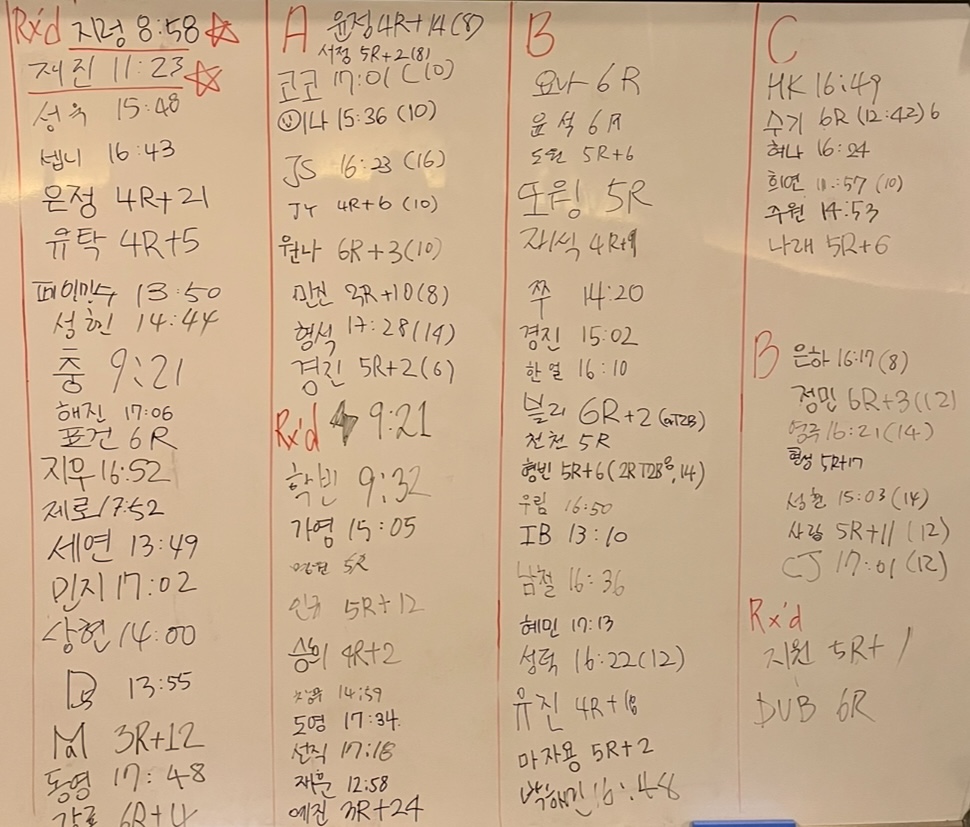 Rx'd 지정 8:58
재진 11:23
성욱 15:48
쎕니 16:43
은정 4R+21
유탁 4R+5
페이민수 13:50
성현 14:44
춤 9:21
해진 17:06
표건 6R
지우 16:52
제로 17:52
세연 13:49
민지 17:02
상현 14:00
13:55
3R+12
동영 17:48
6R+4
A 윤정 4R+14(8)
서정 5R+2(8)
코코 17:01 (10)
이나 15:36 (10)
JS 16:23 (16)
JY 4R+6 (10)
원나 6R+3(10)
민진 2R+10(8)
형석 17:28(14)
경진 5R+2(6)
Rx'd 9:21
학빈 9:32
가영 15:05
5R
인규 5R+12
승희 4R+2
14:59
도영 17:34
선직 17:18
재훈 12:58
예진 3R+24
B
요나 6R
윤석 6R
도원 5R+6
또윙 5R
재식 4R+9
쭈 14:20
경진 15:02
한얼 16:10
블리 6R+2
천천 5R
형빈 5R+6(2RT2B, 14)
우림 16:50
IB 13:10
남철 16:36
혜민 17:13
성택 16:22(12)
유진 4R+18
마자용 5R+2
박해민 16:48
C
HK 16:49
수기 6R (12:42)6
허나 16:24
희연 11:57 (10)
주원 14:53
나래 5R+6
B 은하 16:17(8)
정민 6R+3(12)
영주 16:21(14)
형성 5R+17
성환 15:03(14)
사람 5R+11(12)
CJ 17:01(12)
Rx'd
지원 5R+1
DUB 6R